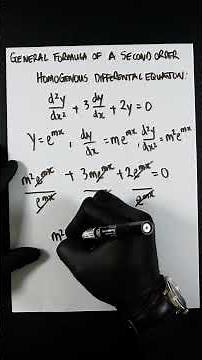 GENERAL FORMULA OF A SECOND ORDER
HOMOGENOUS DIFFERENTIAL EQUATION:
d²y/dx² + 3 dy/dx + 2y = 0
y = e^mx , dy/dx = me^mx , d²y/dx² = m²e^mx
m²e^mx/e^mx + 3me^mx + 2e^mx/e^mx = 0
m²